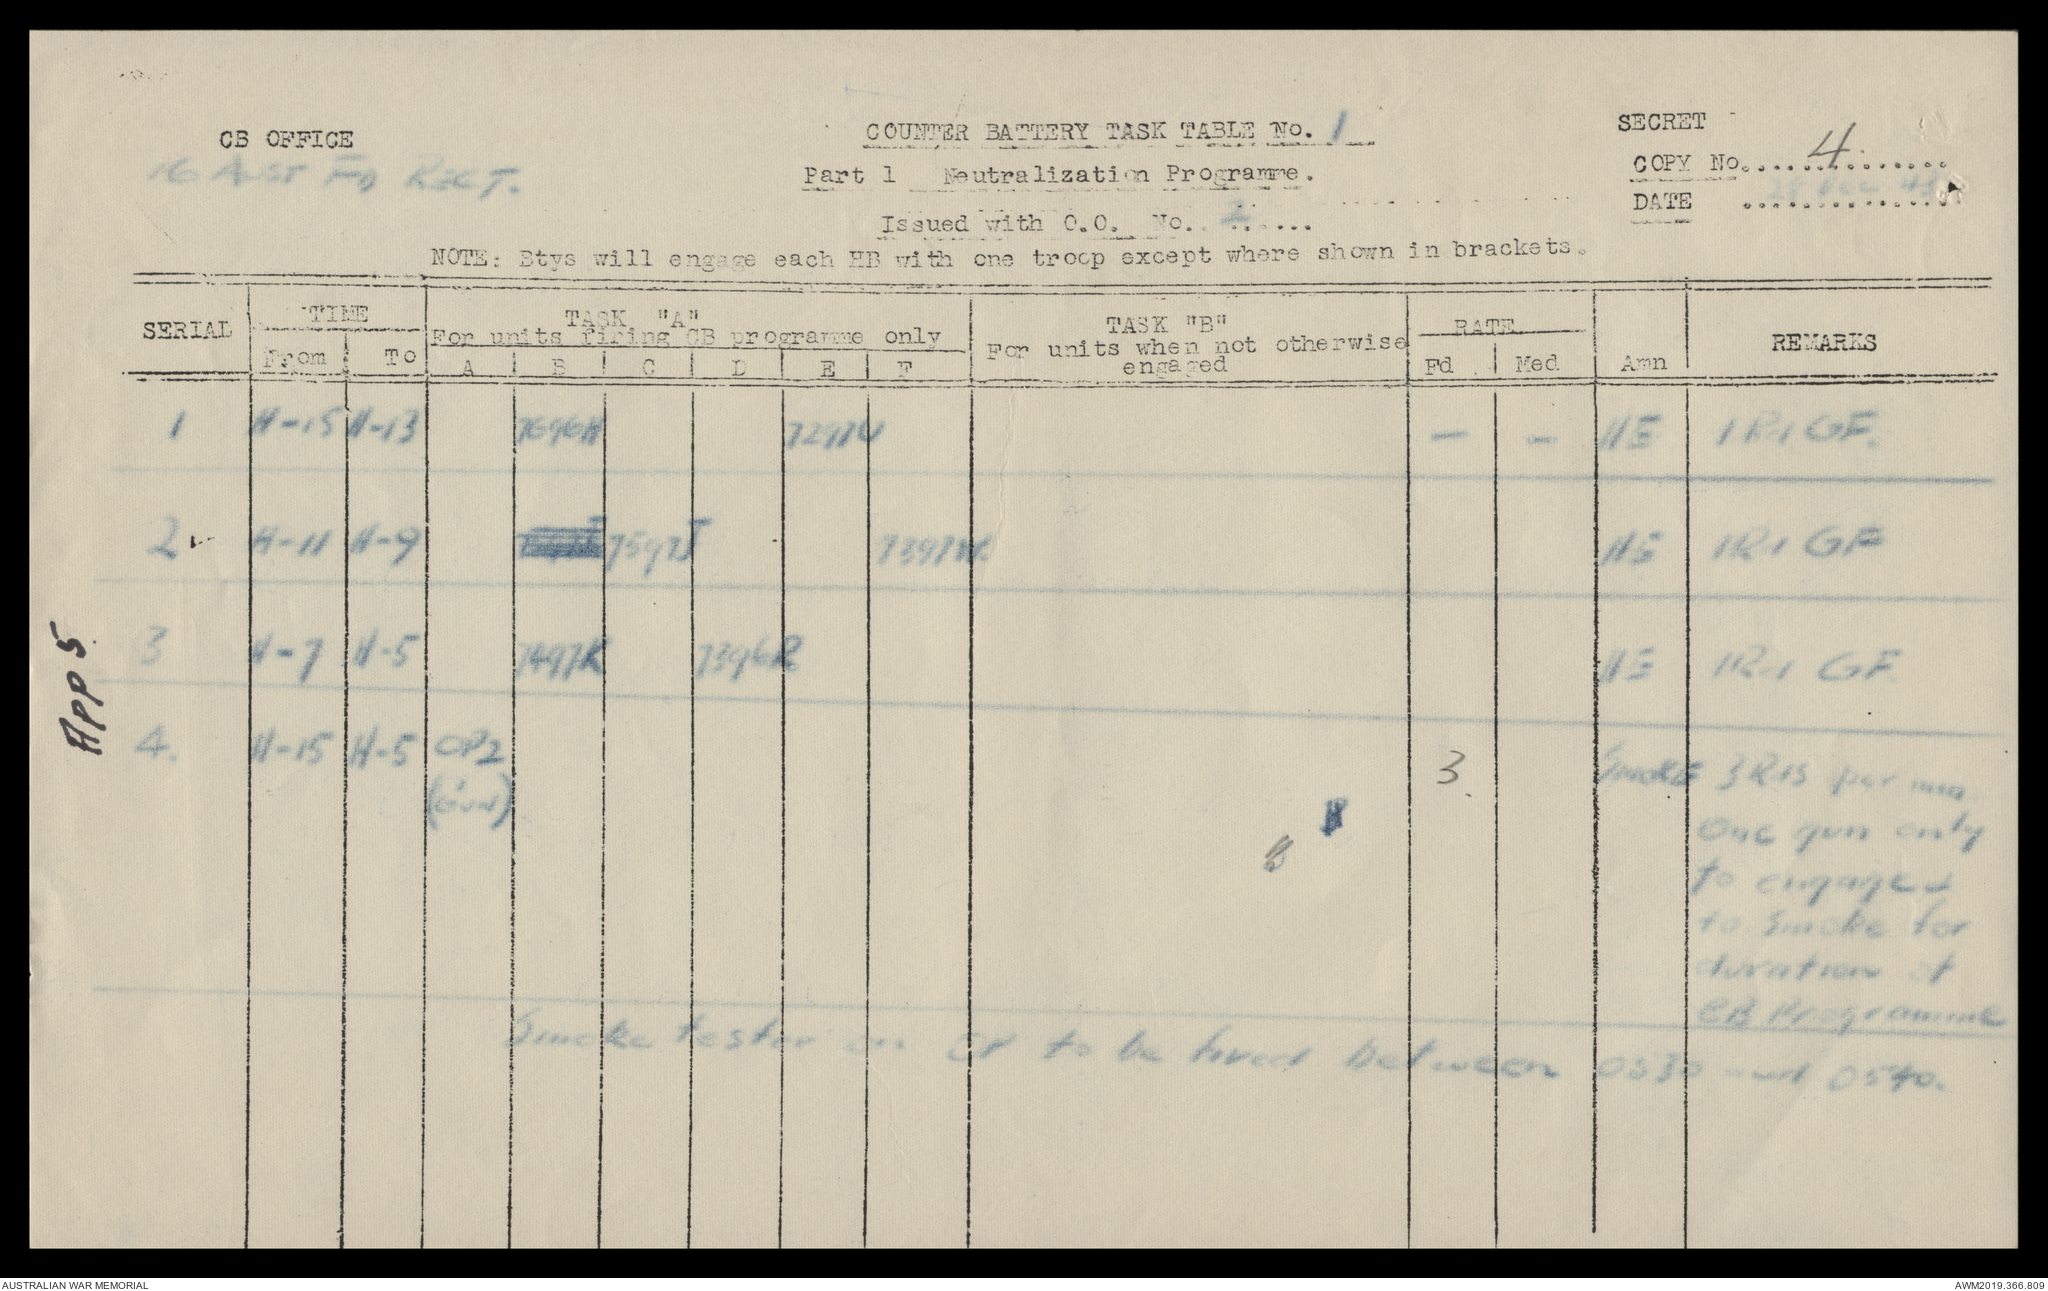 CB OFFICE
16 AUST FD REGT.
COUNTER BATTERY TASK TABLE No. 1
Part 1 Neutralization Programme.
Issued with O.O. No. 2
SECRET
COPY No. 4
DATE 28 43
NOTE: Btys will engage each HB with one troop except where shown in brackets.
SERIAL TIME TASK "A" TASK "B" RATE Amn REMARKS
For units firing CB programme only For units when not otherwise engaged
From To A B C D E F Fd Med
1 H-15 H-13 7696H 7297U - - HE 1 R1 GF.
2 H-11 H-9 7597J HE 1R1 GF
3 H-7 H-5 7497K 7396R HE 1R1 GF
4. H-15 H-5 OP2 3 Smoke 3 Rds per min
(1 Gun) One gun only
to engaged
to smoke for
duration of
CB Programme
Smoke tester on OP to be fired between 0530 and 0540.
App 5
AUSTRALIAN WAR MEMORIAL
AWM2019.366.809